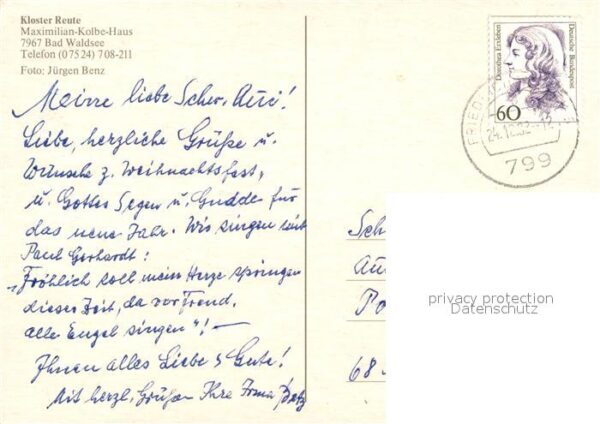 Kloster Reute
Maximilian-Kolbe-Haus
7967 Bad Waldsee
Telefon (07524) 708-211
Foto: Jürgen Benz
Meine liebe Schw.
Liebe, herzliche Grüße u.
Wünsche z. Weihnachtsfest,
u. Gottes Segen u. Gnade für
das neue Jahr. Wir singen mit
Paul Gerhardt:
"Fröhlich soll mein Herze springen
dieser Zeit, da vor Freud,
alle Engel singen"! —
Ihnen alles Liebe & Gute!
Mit herzl. Grüßen Ihre Irma
Dorothea Erxleben
Deutsche Bundespost
60
FRIED
799
Sch
Po
68
privacy protection
Datenschutz